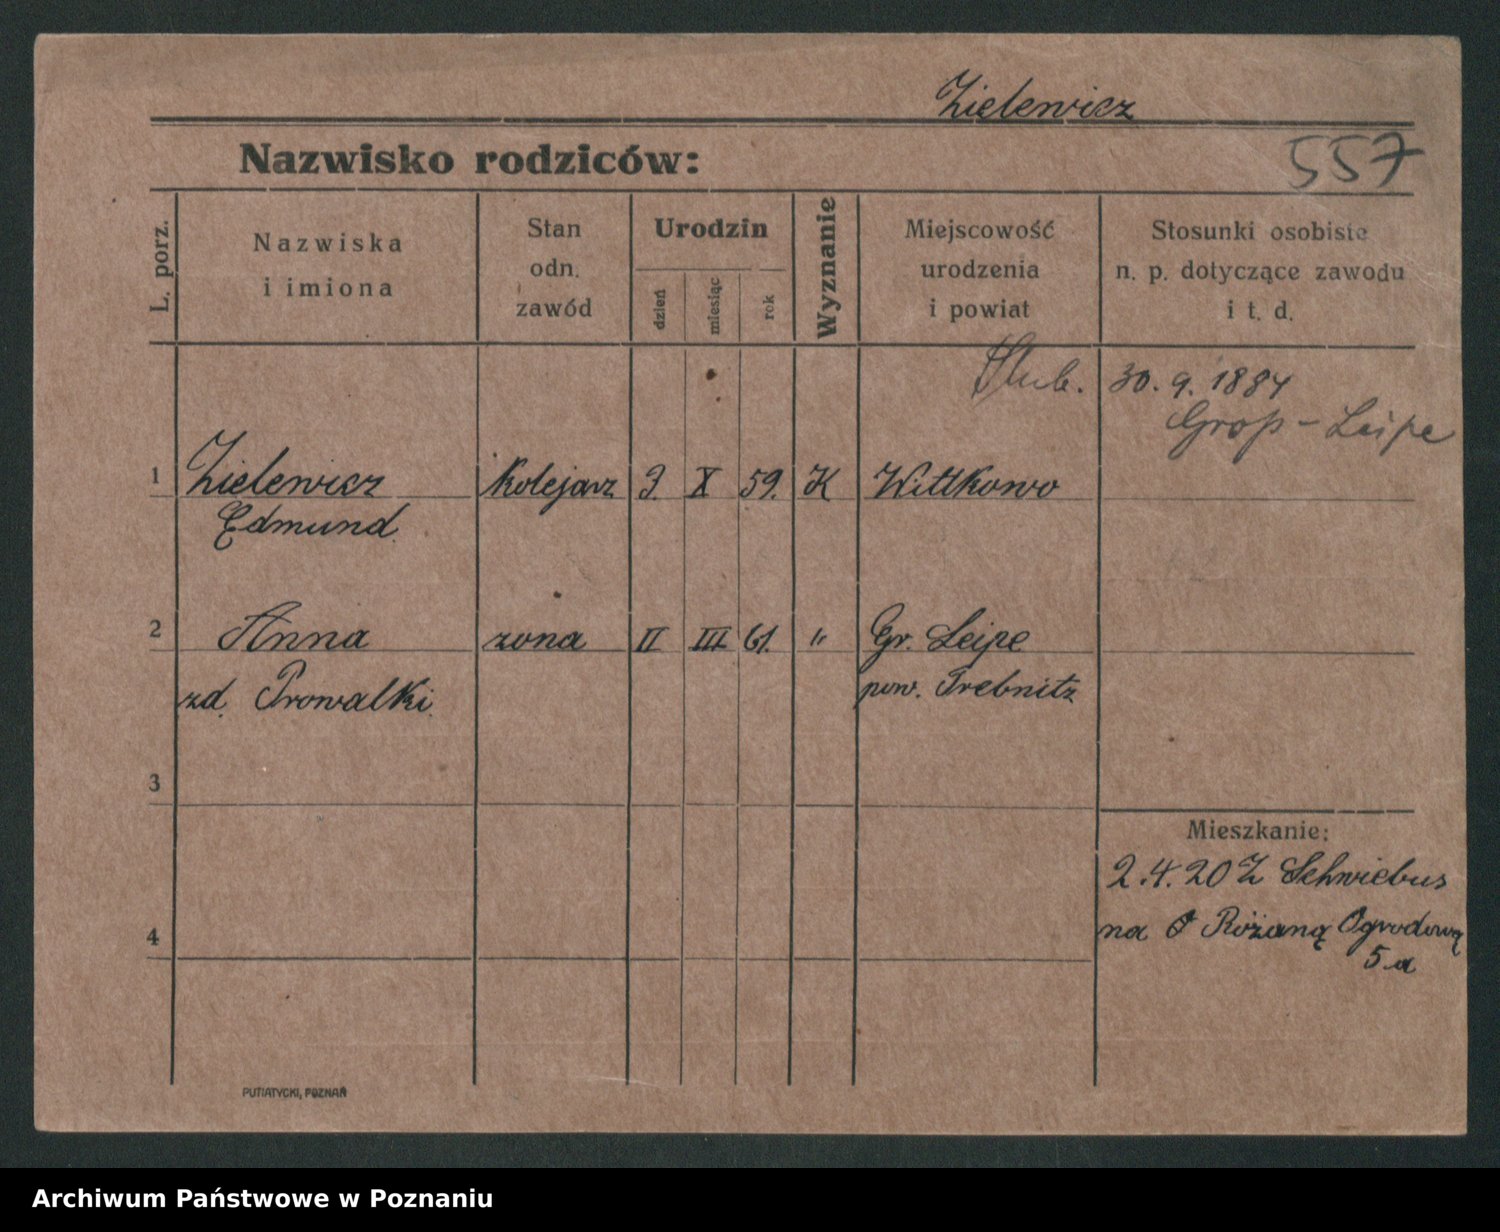 Zielewicz
Nazwisko rodziców:
557
L. porz.
Nazwiska
i imiona
Stan
odn.
zawód
Urodzin
dzień
miesiąc
rok
Wyznanie
Miejscowość
urodzenia
i powiat
Stosunki osobiste
n. p. dotyczące zawodu
i t. d.
Ślub. 30. 9. 1884
Groß-Leipe
1 Zielewicz kolejarz 3. X 59. K Wittkowo
Edmund
2 Anna zona II III 61. " Gr. Leipe
zd. Prowalki pow. Trebnitz
3
Mieszkanie:
2.4.20 Z Schwiebus
na Różaną Ogrodową
5a
4
PUTIATYCKI, POZNAŃ
Archiwum Państwowe w Poznaniu